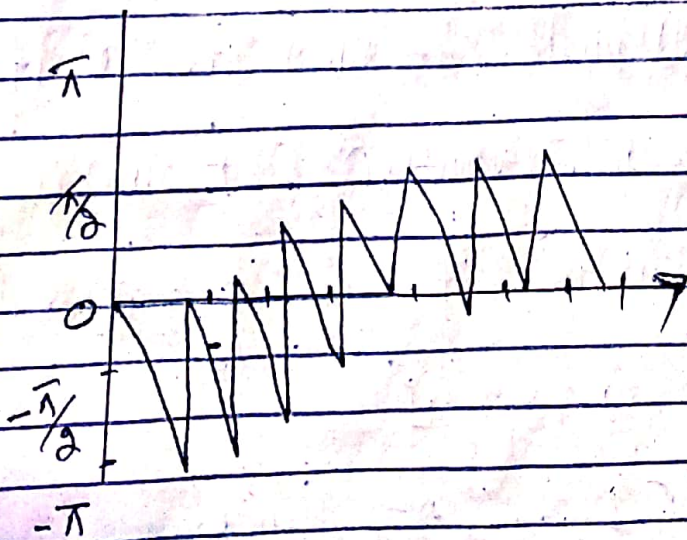 π
π/2
0
-π/2
-π